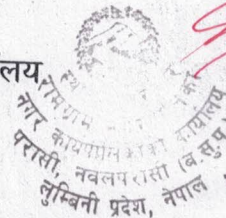 लय
रामग्राम
नगर कार्यपालिकाको कार्यालय
परासी, नवलपरासी (ब.सु.प.)
लुम्बिनी प्रदेश, नेपाल